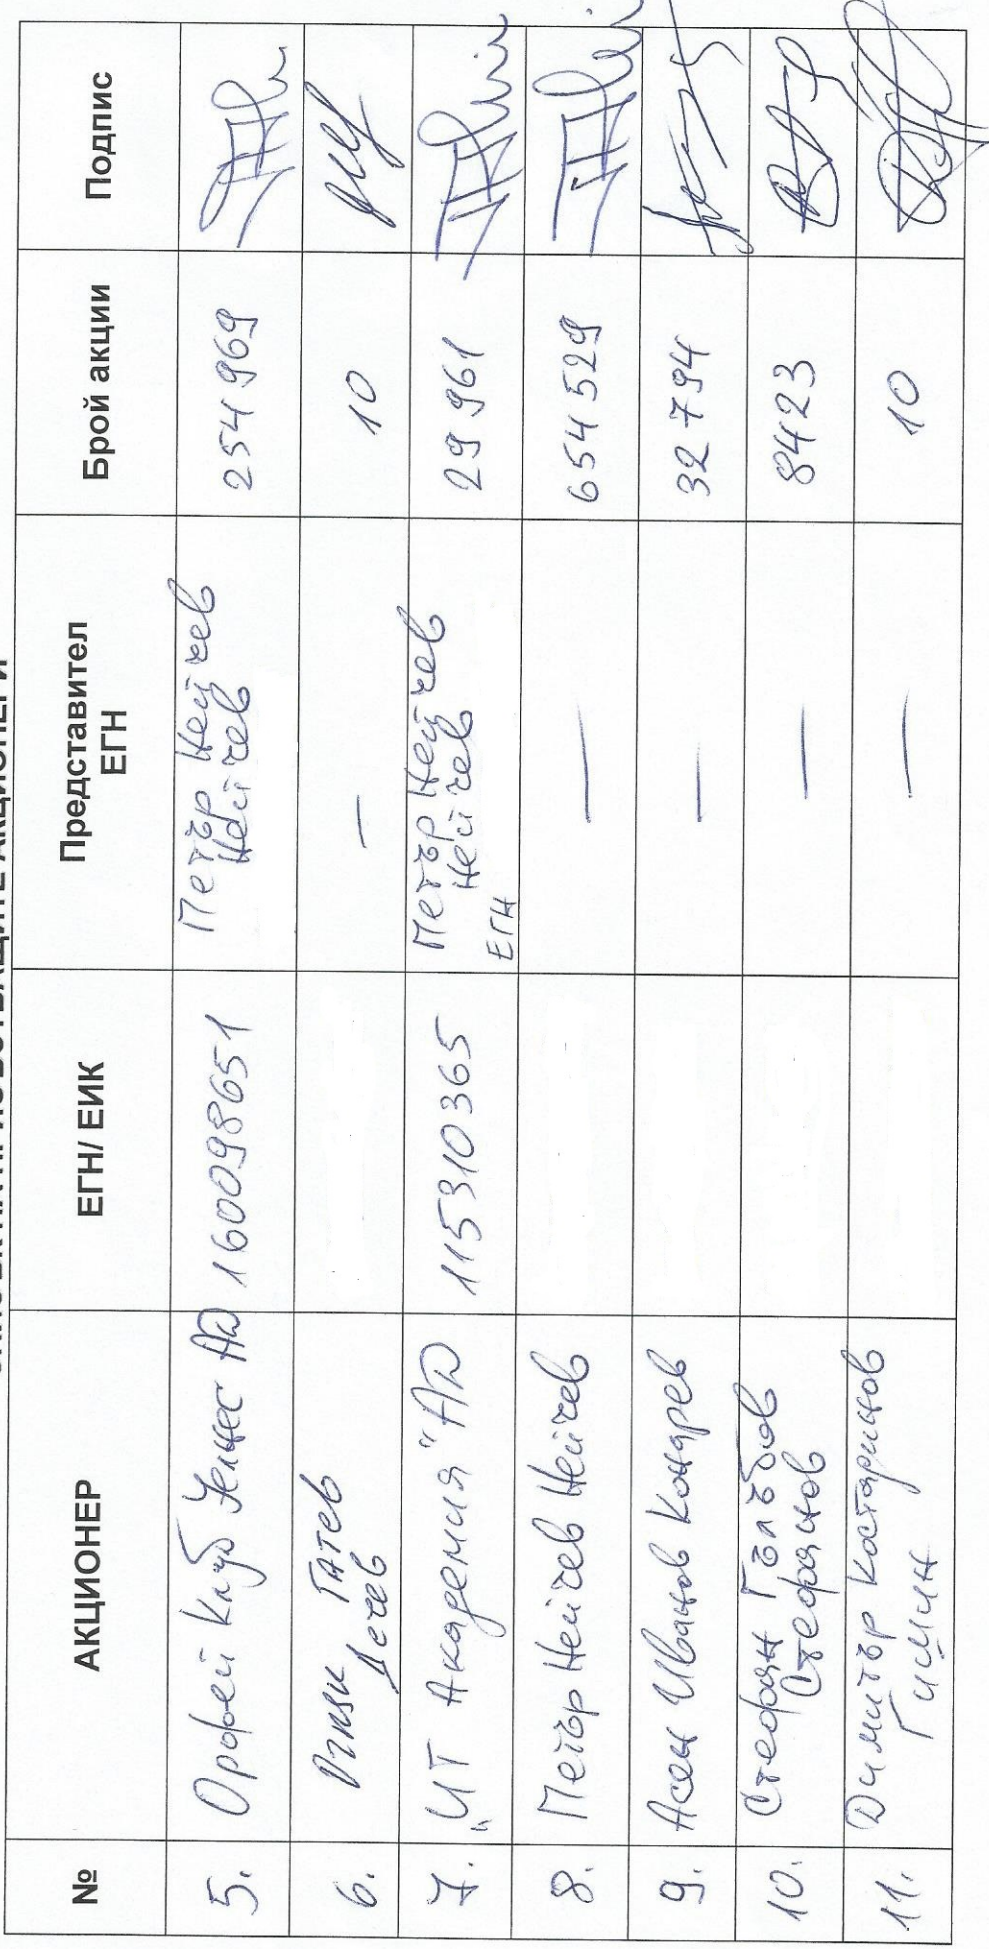 № АКЦИОНЕР ЕГН/ ЕИК Представител ЕГН Брой акции Подпис
5. Орфей Клуб Уелнес АД 160098651 Петър Нейчев Нейчев 254 969
6. Татев Дечев — 10
7. „ИТ Академия" АД 115310365 Петър Нейчев Нейчев ЕГН 29 961
8. Петър Нейчев Нейчев — 654 529
9. Асен Иванов Конарев — 32 794
10. Стефан Гълъбов Стефанов — 8423
11. Димитър Костадинов — 10